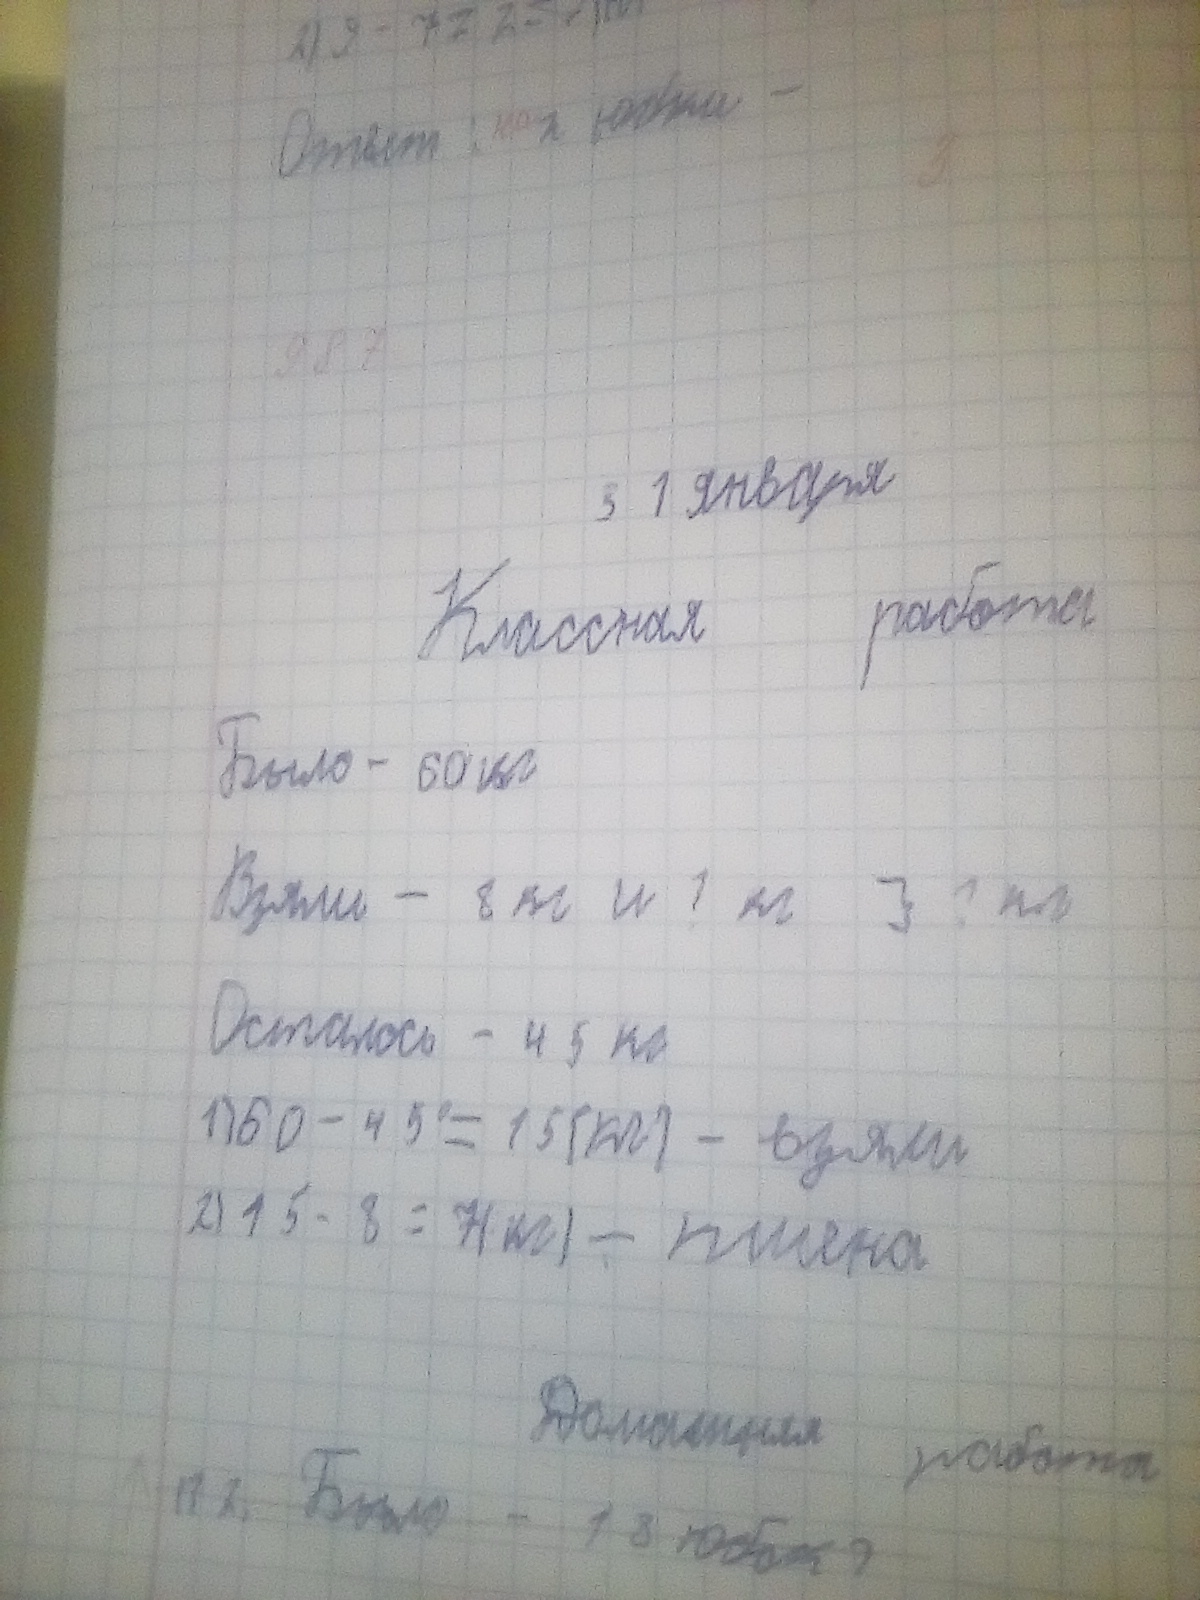 2) 9 - 7 = 2
Ответ : 2 юбки -
3
987
31 января
Классная работа
Было - 60 кг
Взяли - 8 кг и ? кг } ? кг
Осталось - 45 кг
1) 60 - 45 = 15 (кг) - взяли
2) 15 - 8 = 7 (кг) - пшена
Домашняя работа
№ 2. Было - 18 юбок ?